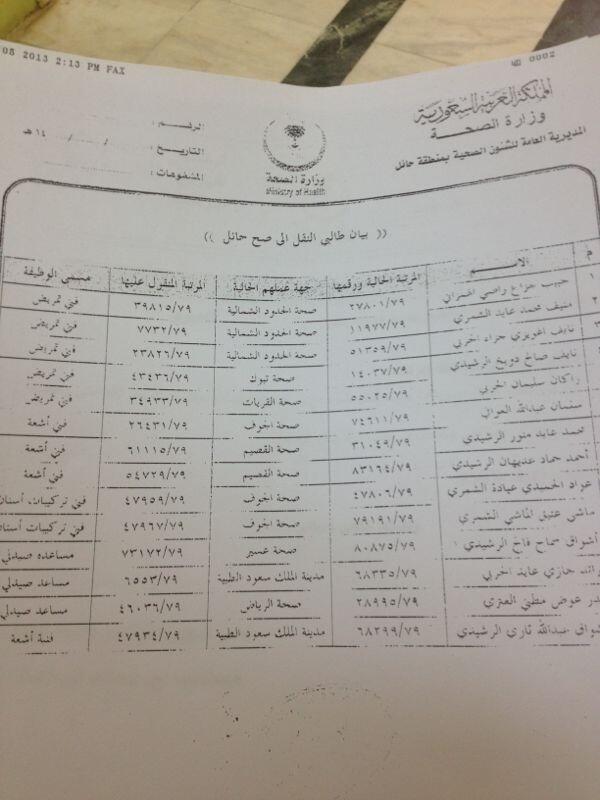 08 2013 2:13 PM FAX
0002
المملكة العربية السعودية
وزارة الصحة
المديرية العامة للشئون الصحية بمنطقة حائل
وزارة الصحة
Ministry of Health
الرقم :
التاريخ : / / ١٤هـ
المشفوعات :
(( بيان طالبي النقل الى صح حائل ))
م الاســم المرتبة الحالية ورقمها جهة عملهم الحالية المرتبة المنقول عليها مسمى الوظيفة
١ حبيب جزاع راضي ٢٧٨٠١/٧٩ صحة الحدود الشمالية ٣٩٨١٥/٧٩ فني تمريض
٢ منيف محمد عايد الشمري ١١٩٧٧/٧٩ صحة الحدود الشمالية ٧٧٣٢/٧٩ فني تمريض
٣ نايف جزاء الحربي ٥١٣٥٩/٧٩ صحة الحدود الشمالية ٢٣٨٢٦/٧٩ فني تمريض
نايف صالح دويخ الرشيدي ١٤٠٣٧/٧٩ صحة تبوك ٤٣٤٣٦/٧٩ فني تمريض
راكان سليمان الحربي ٥٥٠٢٥/٧٩ صحة القريات ٣٤٩٣٣/٧٩ فني تمريض
سلمان عبدالله ٧٤٦١١/٧٩ صحة الجوف ٢٦٤٣١/٧٩ فني أشعة
محمد عايد منور الرشيدي ٣١٠٤٩/٧٩ صحة القصيم ٦١١١٥/٧٩ فني أشعة
أحمد حماد عديهان الرشيدي ٨٣١٦٤/٧٩ صحة القصيم ٥٤٧٢٩/٧٩ فني أشعة
عواد الحميدي عيادة الشمري ٤٧٨٠٦/٧٩ صحة الجوف ٤٧٩٥٩/٧٩ فني تركيبات أسنان
ماشي عتيق الماشي الشمري ٧٩١٩١/٧٩ صحة الجوف ٤٧٩٦٧/٧٩ فني تركيبات أسنان
أشواق سماح فالح الرشيدي ٨٠٨٧٥/٧٩ صحة عسير ٧٣١٧٢/٧٩ مساعده صيدلي
حازي عايد الحربي ٦٨٣٣٥/٧٩ مدينة الملك سعود الطبية ٦٥٥٣/٧٩ مساعد صيدلي
عوض مطني العنزي ٢٨٩٩٥/٧٩ صحة الرياض ٤٦٠٣٦/٧٩ مساعد صيدلي
عبدالله ثاري الرشيدي ٦٨٢٩٩/٧٩ مدينة الملك سعود الطبية ٤٧٩٣٤/٧٩ فنية أشعة